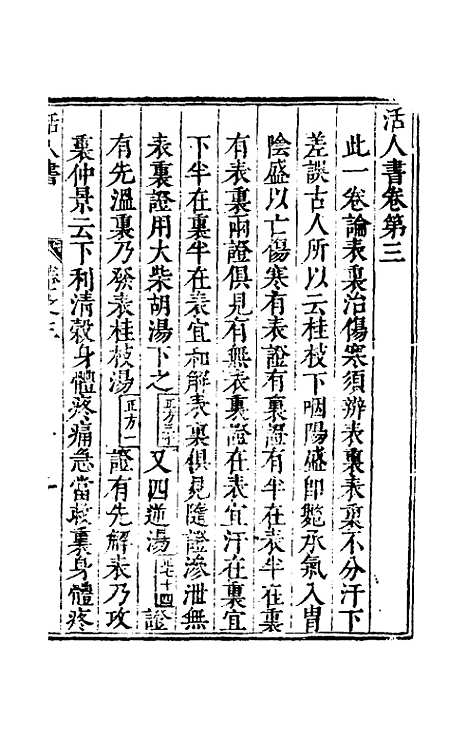 活人書卷第三
此一卷論表裏治傷寒須辨表裏表裏不分汗下
差誤古人所以云桂枝下咽陽盛即斃承氣入胃
陰盛以亡傷寒有表證有裏證有半在表半在裏
有表裏兩證俱見有無表裏證在表宜汗在裏宜
下半在裏半在表宜和解表裏俱見隨證滲泄無
表裏證用大柴胡湯下之正方三十又四逆湯正六十四證
有先溫裏乃發表桂枝湯正方一證有先解表乃攻
裏仲景云下利清穀身體疼痛急當救裏身體疼
活人書 卷之三 一